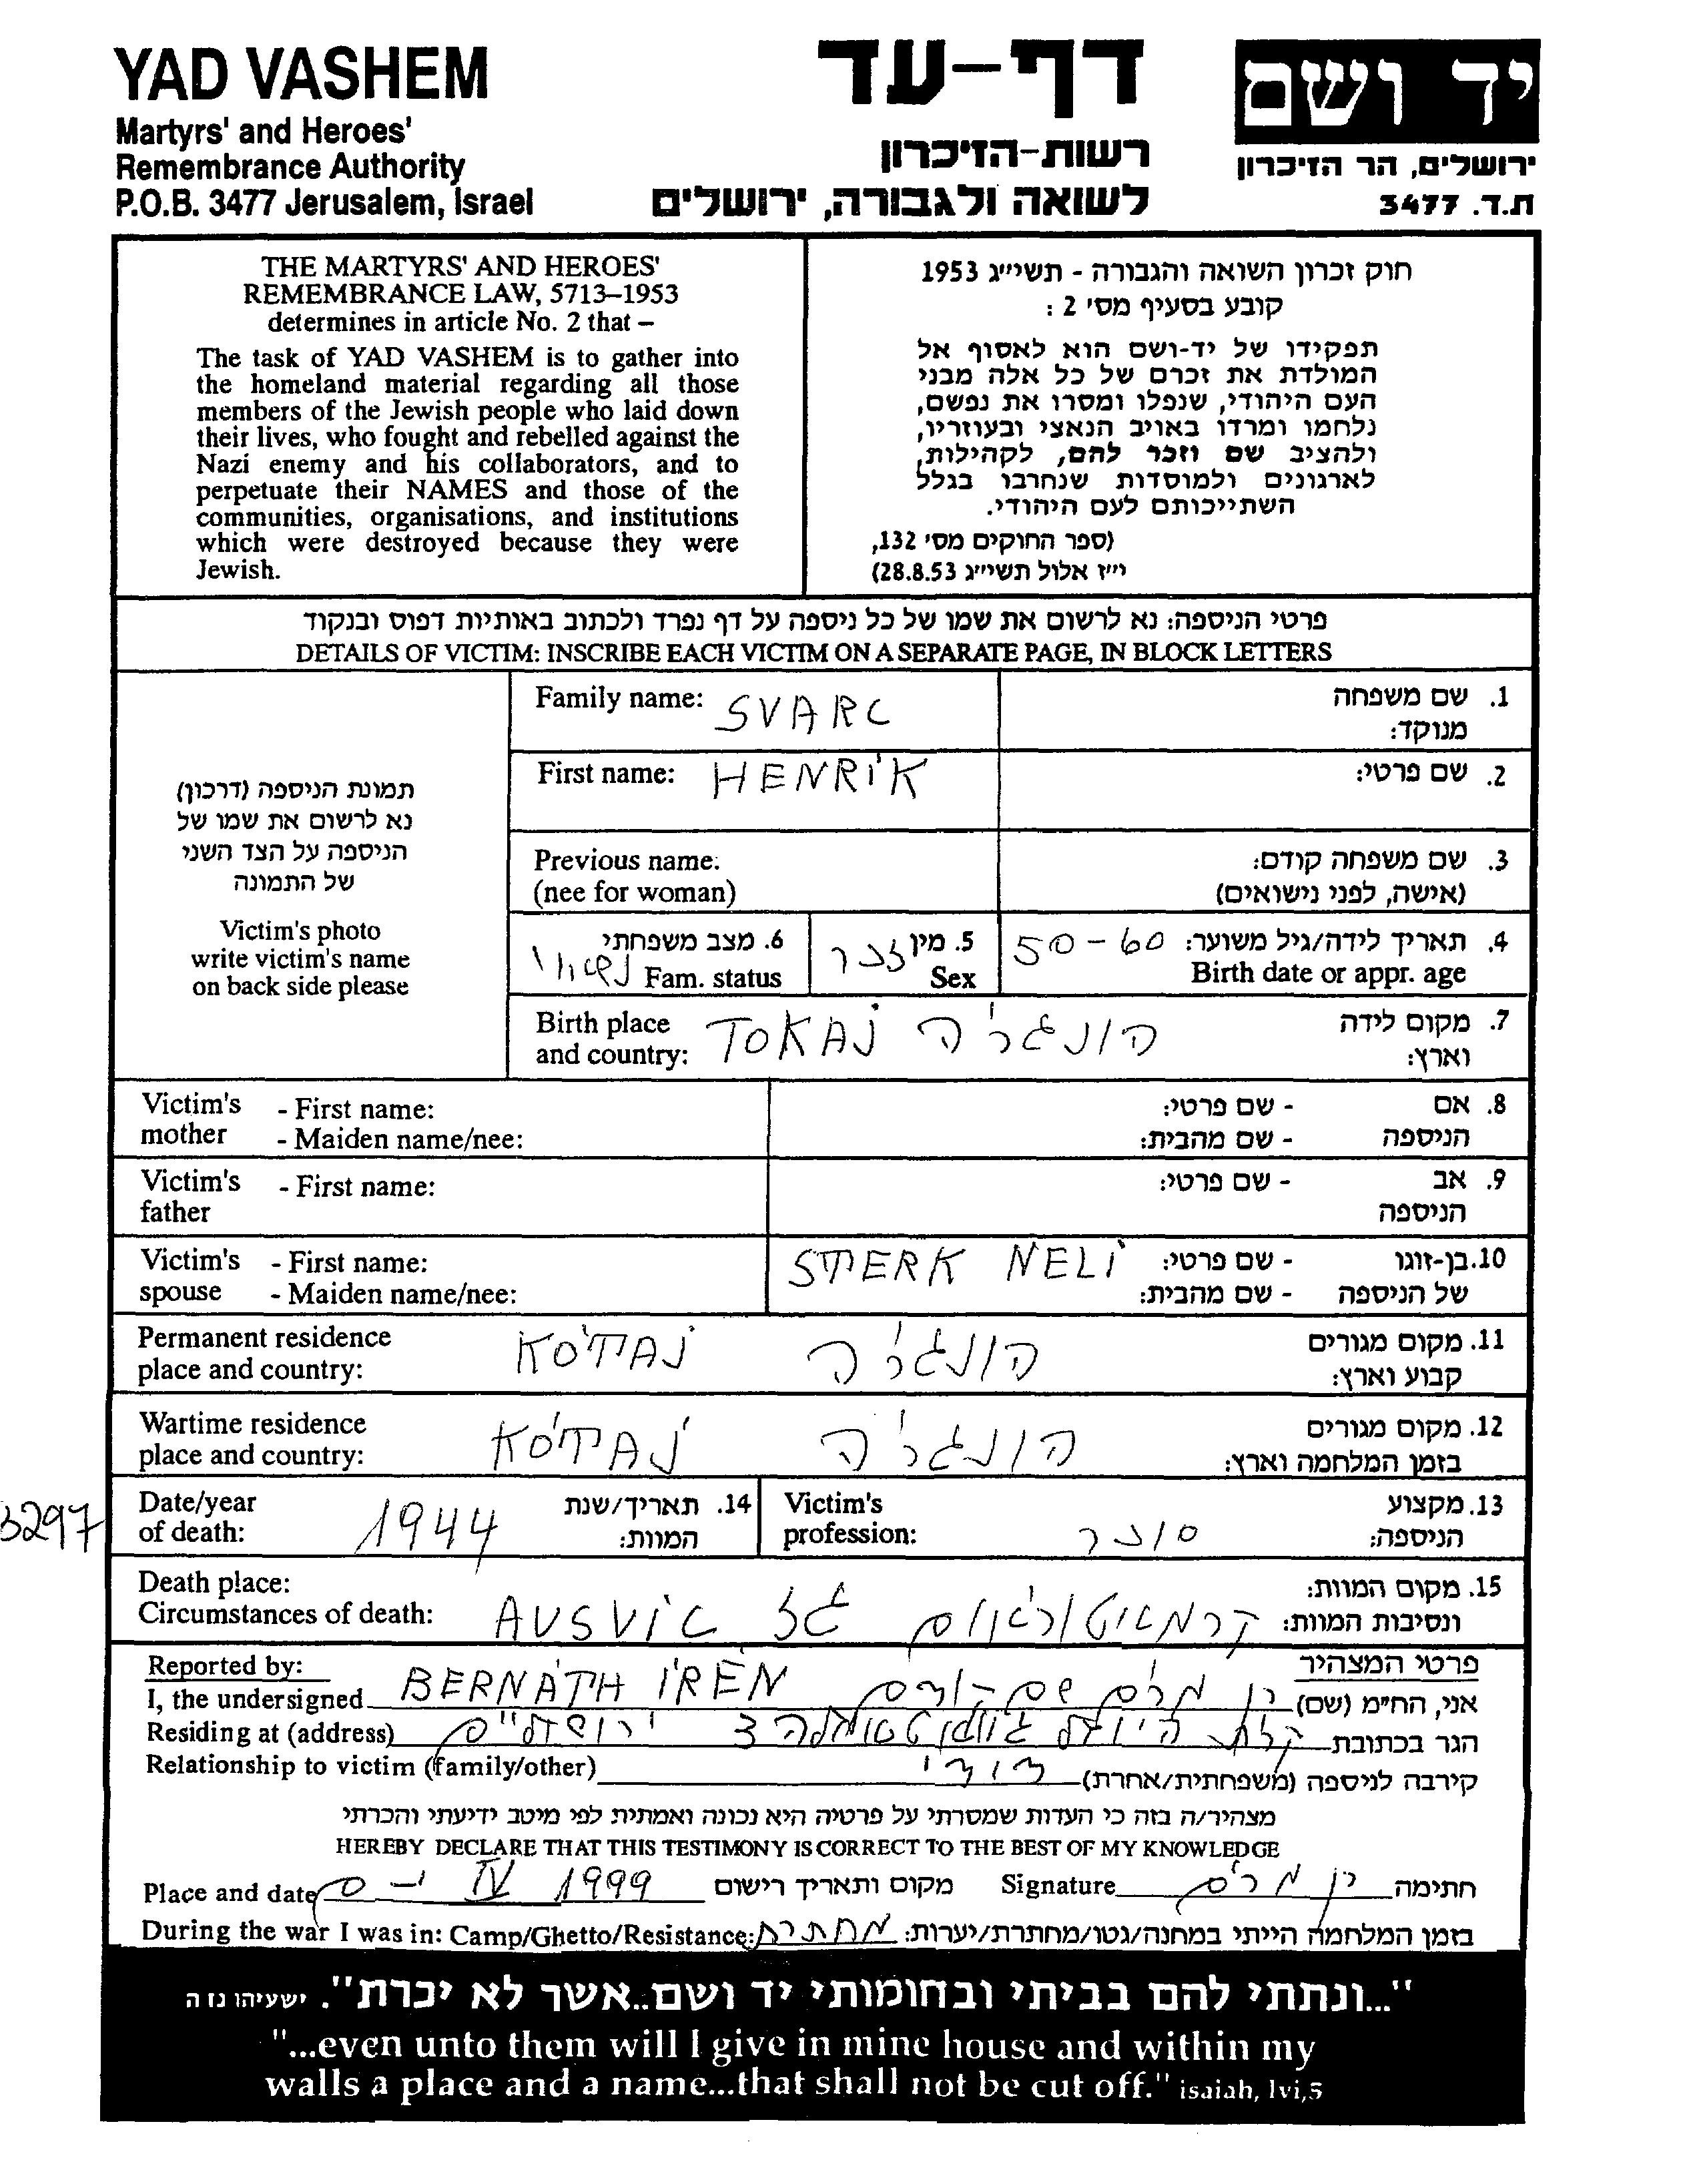 YAD VASHEM
Martyrs' and Heroes'
Remembrance Authority
P.O.B. 3477 Jerusalem, Israel
דף-עד
רשות-הזיכרון
לשואה ולגבורה, ירושלים
יד ושם
ירושלים, הר הזיכרון
ת.ד. 3477
THE MARTYRS' AND HEROES'
REMEMBRANCE LAW, 5713–1953
determines in article No. 2 that –
The task of YAD VASHEM is to gather into
the homeland material regarding all those
members of the Jewish people who laid down
their lives, who fought and rebelled against the
Nazi enemy and his collaborators, and to
perpetuate their NAMES and those of the
communities, organisations, and institutions
which were destroyed because they were
Jewish.
חוק זכרון השואה והגבורה - תשי״ג 1953
קובע בסעיף מס' 2 :
תפקידו של יד-ושם הוא לאסוף אל
המולדת את זכרם של כל אלה מבני
העם היהודי, שנפלו ומסרו את נפשם,
נלחמו ומרדו באויב הנאצי ובעוזריו,
ולהציב שם וזכר להם, לקהילות,
לארגונים ולמוסדות שנחרבו בגלל
השתייכותם לעם היהודי.
(ספר החוקים מס' 132,
י״ז אלול תשי״ג 28.8.53)
פרטי הניספה: נא לרשום את שמו של כל ניספה על דף נפרד ולכתוב באותיות דפוס ובנקוד
DETAILS OF VICTIM: INSCRIBE EACH VICTIM ON A SEPARATE PAGE, IN BLOCK LETTERS
תמונת הניספה (דרכון)
נא לרשום את שמו של
הניספה על הצד השני
של התמונה
Victim's photo
write victim's name
on back side please
Family name: SVARC 1. שם משפחה
מנוקד:
First name: HENRIK 2. שם פרטי:
Previous name: 3. שם משפחה קודם:
(nee for woman) (אישה, לפני נישואים)
6. מצב משפחתי נשוי Fam. status
5. מין זכר Sex
4. תאריך לידה/גיל משוער: 50-60
Birth date or appr. age
Birth place TOKAJ הונגריה 7. מקום לידה
and country: וארץ:
Victim's - First name: - שם פרטי: 8. אם
mother - Maiden name/nee: - שם מהבית: הניספה
Victim's - First name: - שם פרטי: 9. אב
father הניספה
Victim's - First name: STERK NELI - שם פרטי: 10. בן-זוגו
spouse - Maiden name/nee: - שם מהבית: של הניספה
Permanent residence KOTAJ הונגריה 11. מקום מגורים
place and country: קבוע וארץ:
Wartime residence KOTAJ הונגריה 12. מקום מגורים
place and country: בזמן המלחמה וארץ:
3297
Date/year 1944 14. תאריך/שנת
of death: המוות:
Victim's סוכר 13. מקצוע
profession: הניספה:
Death place: 15. מקום המוות:
Circumstances of death: AUSVIC גז קרמטוריום ונסיבות המוות:
Reported by: פרטי המצהיר
I, the undersigned BERNÁTH IRÉN מרים אני, הח״מ (שם)
Residing at (address) ירושלים 3 הגר בכתובת
Relationship to victim (family/other) דודי קירבה לניספה (משפחתית/אחרת)
מצהיר/ה בזה כי העדות שמסרתי על פרטיה היא נכונה ואמתית לפי מיטב ידיעתי והכרתי
HEREBY DECLARE THAT THIS TESTIMONY IS CORRECT TO THE BEST OF MY KNOWLEDGE
Place and date י-ם IV 1999 מקום ותאריך רישום Signature מרים חתימה
During the war I was in: Camp/Ghetto/Resistance: מחתרת בזמן המלחמה הייתי במחנה/גטו/מחתרת/יערות:
"...ונתתי להם בביתי ובחומותי יד ושם...אשר לא יכרת". ישעיהו נו ה
"...even unto them will I give in mine house and within my
walls a place and a name...that shall not be cut off." isaiah, lvi,5